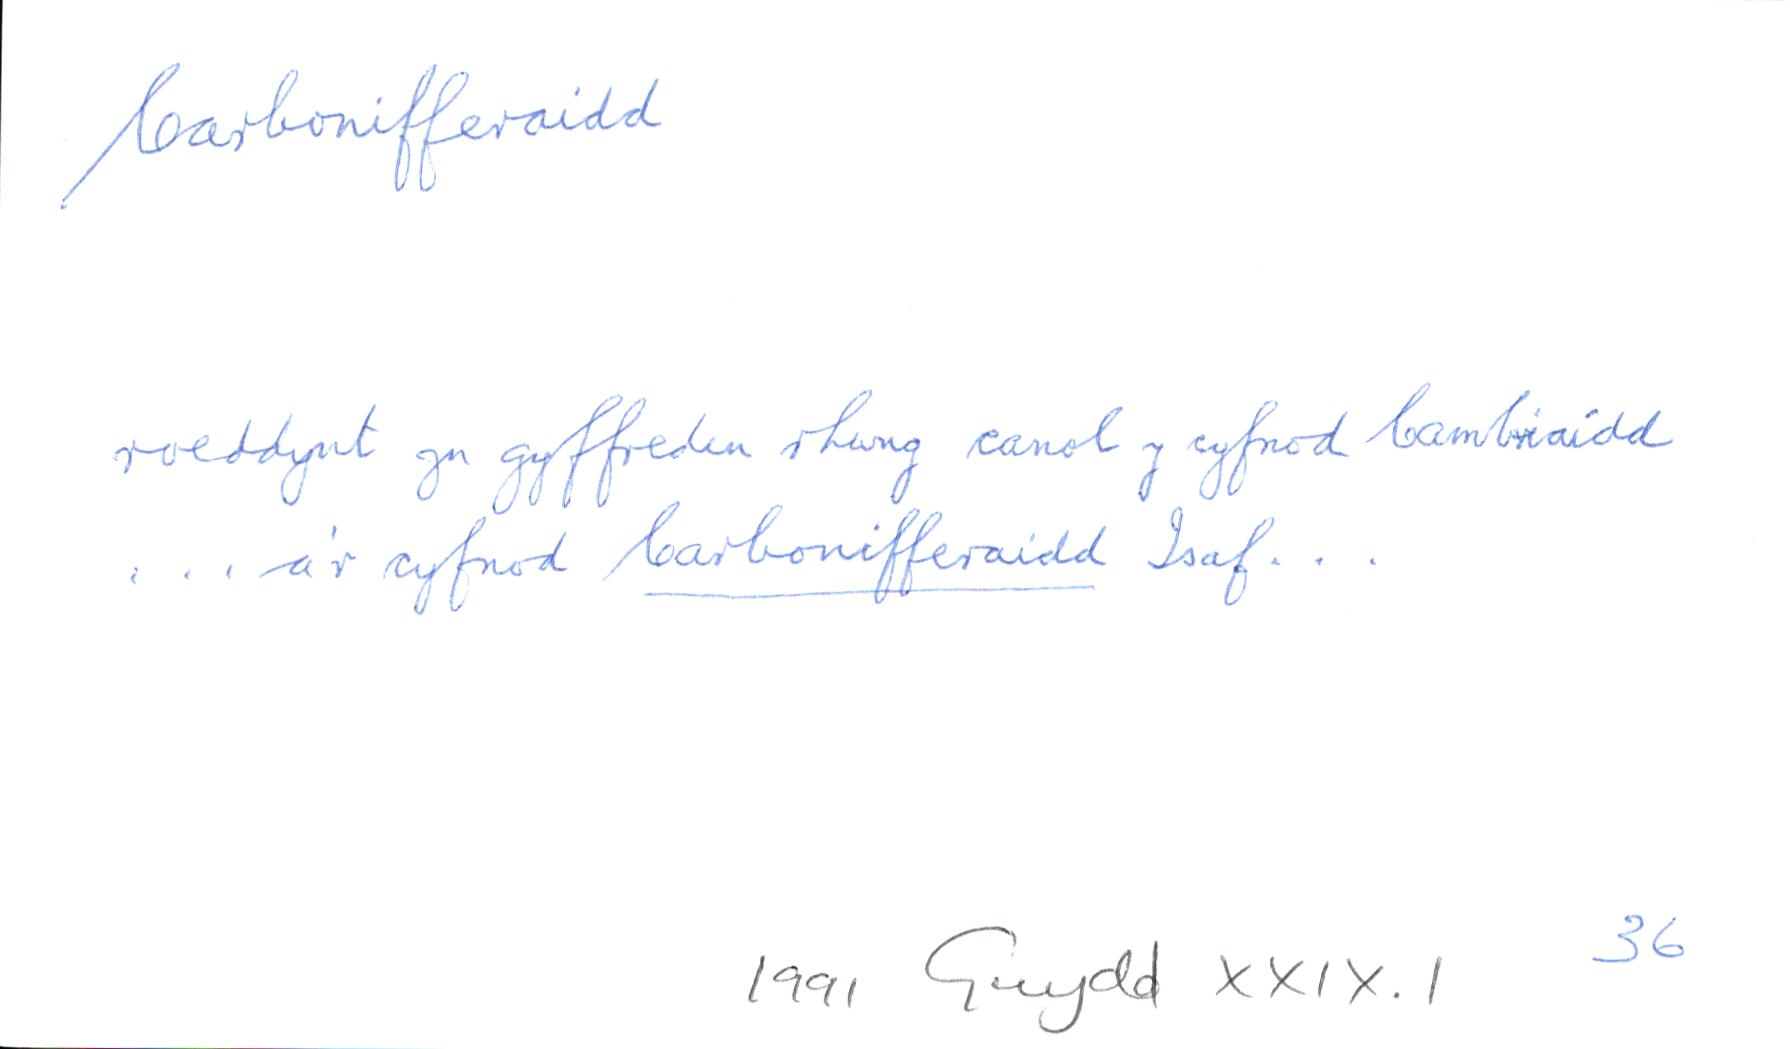 Carbonifferaidd
roeddynt yn gyffreden rhwng canol y cyfnod Cambriaidd
... a'r cyfnod Carbonifferaidd Isaf...
36
1991 Gwydd XXIX.1